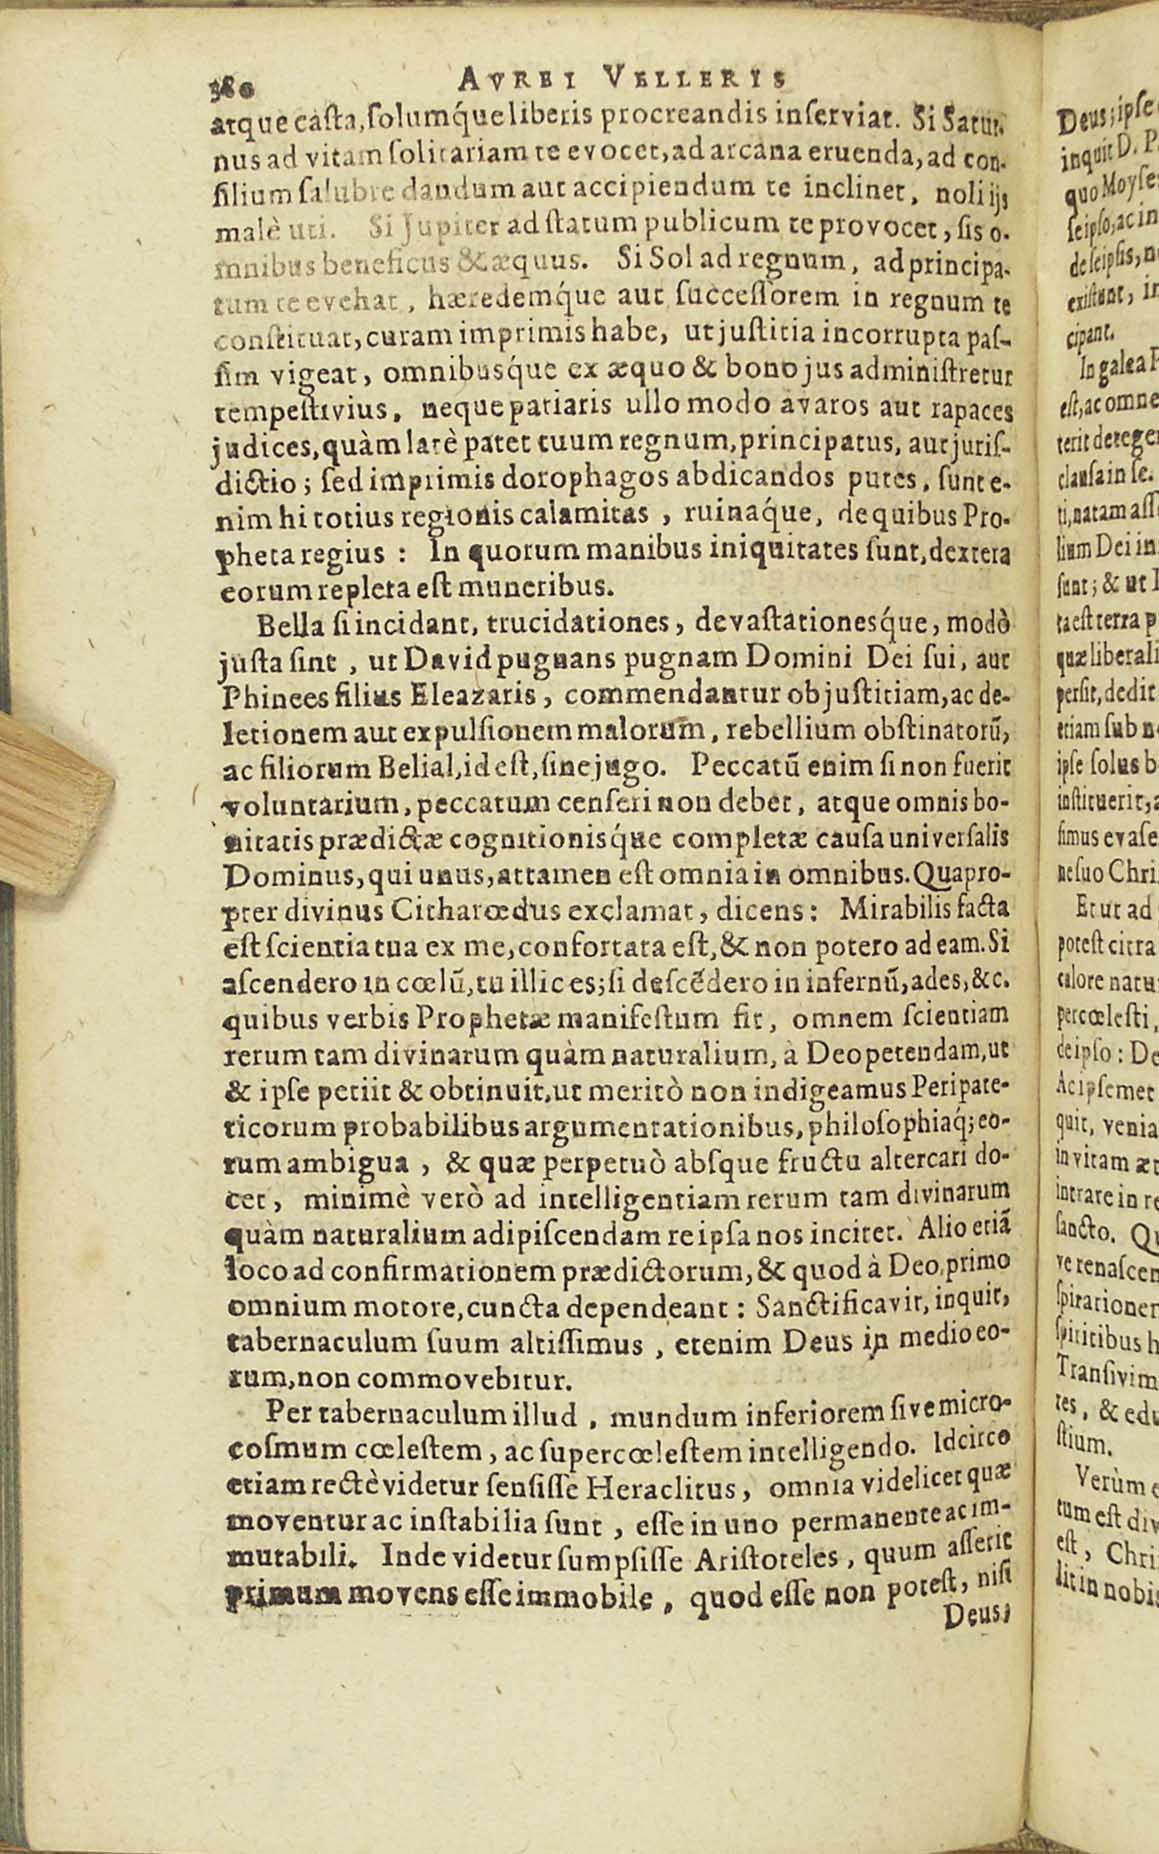 380
AVREI VELLERIS
atque casta, solumq́ue liberis procreandis inserviat. Si Satur-
nus ad vitam solitariam te evocet, ad arcana eruenda, ad con-
silium salubre dandum aut accipiendum te inclinet, noli ijs
malè uti. Si Jupiter ad statum publicum te provocet, sis o-
mnibus beneficus & æquus. Si Sol ad regnum, ad principa-
tum te evehat, hæredemq́ue aut successorem in regnum te
constituat, curam imprimis habe, ut justitia incorrupta pas-
sim vigeat, omnibusq́ue ex æquo & bono jus administretur
tempestivius, neque patiaris ullo modo avaros aut rapaces
judices, quàm latè patet tuum regnum, principatus, aut juris-
dictio; sed imprimis dorophagos abdicandos putes, sunt e-
nim hi totius regionis calamitas, ruinaq́ue, de quibus Pro-
pheta regius: In quorum manibus iniquitates sunt, dextera
eorum repleta est muneribus.
Bella si incidant, trucidationes, devastationesq́ue, modò
justa sint, ut David pugnans pugnam Domini Dei sui, aut
Phinees filius Eleazaris, commendantur ob justitiam, ac de-
letionem aut expulsionem malorum, rebellium obstinatorũ,
ac filiorum Belial, id est, sine jugo. Peccatũ enim si non fuerit
voluntarium, peccatum censeri non debet, atque omnis bo-
nitatis prædictæ cognitionisq́ue completæ causa universalis
Dominus, qui unus, attamen est omnia in omnibus. Quapro-
pter divinus Citharœdus exclamat, dicens: Mirabilis facta
est scientia tua ex me, confortata est, & non potero ad eam. Si
ascendero in cœlũ, tu illic es; si descẽdero in infernũ, ades, &c.
quibus verbis Prophetæ manifestum fit, omnem scientiam
rerum tam divinarum quàm naturalium, à Deo petendam, ut
& ipse petiit & obtinuit, ut meritò non indigeamus Peripate-
ticorum probabilibus argumentationibus, philosophiaq́; eo-
rum ambigua, & quæ perpetuò absque fructu altercari do-
cet, minimè verò ad intelligentiam rerum tam divinarum
quàm naturalium adipiscendam reipsa nos incitet. Alio etiã
loco ad confirmationem prædictorum, & quod à Deo, primo
omnium motore, cuncta dependeant: Sanctificavit, inquit,
tabernaculum suum altissimus, etenim Deus in medio eo-
rum, non commovebitur.
Per tabernaculum illud, mundum inferiorem sive micro-
cosmum cœlestem, ac supercœlestem intelligendo. Idcirco
etiam rectè videtur sensisse Heraclitus, omnia videlicet quæ
moventur ac instabilia sunt, esse in uno permanente ac im-
mutabili. Inde videtur sumpsisse Aristoteles, quum asserit
primum movens esse immobile, quod esse non potest, nisi
Deus;
Deus; ipse
inquit D. P
quo Moyse
se ipso, ac in
de seipsis, n
existunt, in
cipant.
In galea P
est, ac omne
terit deteger
clausa in se.
ti, natam ass
lium Dei in
sunt; & ut
ta est terra p
quæ liberali
persit, dedit
etiam sub n
ipse solus b
instituerit, a
simus evase
ne suo Chri
Et ut ad
potest citra
calore natu
per cœlesti,
de ipso: De
Ac ipsemet
quit, venia
in vitam æt
intrare in re
sancto. Qu
ve renascen
spirationen
spiritibus h
Transivim
tes, & edu
stium.
Verùm e
tum est div
est, Chri
lit in nobis